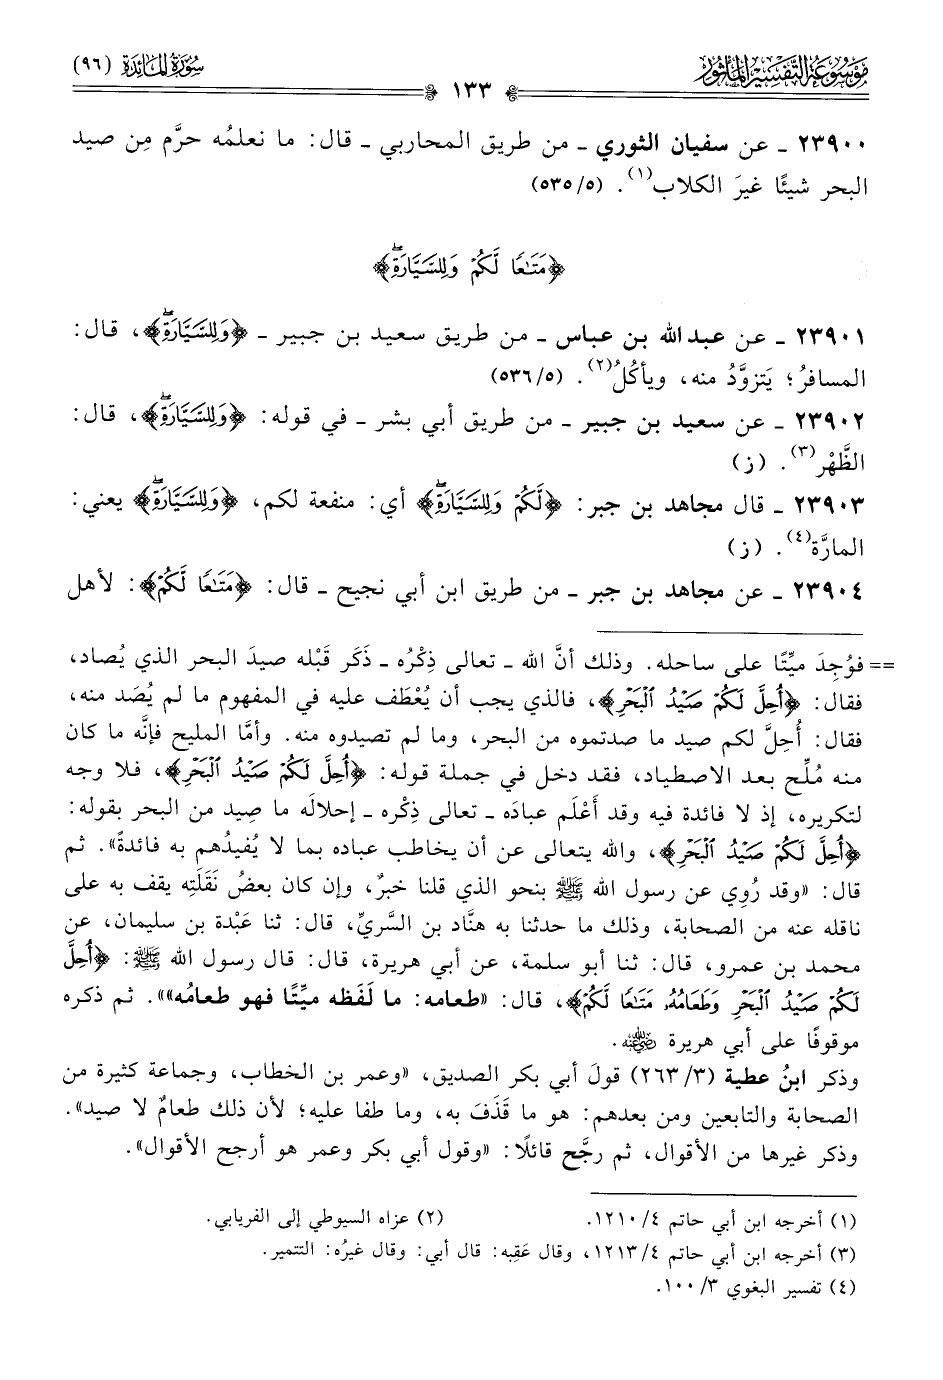 مَوْسُوعَةُ التَّفْسِيرِ المَأْثُور
١٣٣
سُورَةُ المَائِدَة (٩٦)
٢٣٩٠٠ ـ عن سفيان الثوري ـ من طريق المحاربي ـ قال: ما نعلمُه حرَّم مِن صيد
البحر شيئًا غيرَ الكلاب(١). (٥/ ٥٣٥)
﴿مَتَـٰعًا لَّكُمۡ وَلِلسَّيَّارَةِۖ﴾
٢٣٩٠١ ـ عن عبدالله بن عباس ـ من طريق سعيد بن جبير ـ ﴿وَلِلسَّيَّارَةِۖ﴾، قال:
المسافرُ؛ يَتزوَّدُ منه، ويأكُلُ(٢). (٥/ ٥٣٦)
٢٣٩٠٢ ـ عن سعيد بن جبير ـ من طريق أبي بشر ـ في قوله: ﴿وَلِلسَّيَّارَةِۖ﴾، قال:
الظَّهْر(٣). (ز)
٢٣٩٠٣ ـ قال مجاهد بن جبر: ﴿لَكُمۡ وَلِلسَّيَّارَةِۖ﴾ أي: منفعة لكم، ﴿وَلِلسَّيَّارَةِۖ﴾ يعني:
المارَّة(٤). (ز)
٢٣٩٠٤ ـ عن مجاهد بن جبر ـ من طريق ابن أبي نجيح ـ قال: ﴿مَتَـٰعًا لَّكُمۡ﴾: لأهل
== فوُجِدَ ميِّتًا على ساحله. وذلك أنَّ الله ـ تعالى ذِكْرُه ـ ذَكَر قَبْله صيدَ البحر الذي يُصاد،
فقال: ﴿أُحِلَّ لَكُمۡ صَيۡدُ ٱلۡبَحۡرِ﴾، فالذي يجب أن يُعْطَف عليه في المفهوم ما لم يُصَد منه،
فقال: أُحِلَّ لكم صيد ما صدتموه من البحر، وما لم تصيدوه منه. وأمَّا المليح فإنَّه ما كان
منه مُلِّح بعد الاصطياد، فقد دخل في جملة قوله: ﴿أُحِلَّ لَكُمۡ صَيۡدُ ٱلۡبَحۡرِ﴾، فلا وجه
لتكريره، إذ لا فائدة فيه وقد أَعْلَم عبادَه ـ تعالى ذِكْره ـ إحلالَه ما صِيد من البحر بقوله:
﴿أُحِلَّ لَكُمۡ صَيۡدُ ٱلۡبَحۡرِ﴾، والله يتعالى عن أن يخاطب عباده بما لا يُفيدُهم به فائدةً». ثم
قال: «وقد رُوِي عن رسول الله ﷺ بنحو الذي قلنا خبرٌ، وإن كان بعضُ نَقَلَتِه يقف به على
ناقله عنه من الصحابة، وذلك ما حدثنا به هنَّاد بن السَّريِّ، قال: ثنا عَبْدة بن سليمان، عن
محمد بن عمرو، قال: ثنا أبو سلمة، عن أبي هريرة، قال: قال رسول الله ﷺ: ﴿أُحِلَّ
لَكُمۡ صَيۡدُ ٱلۡبَحۡرِ وَطَعَامُهُۥ مَتَـٰعًا لَّكُمۡ﴾، قال: «طعامه: ما لَفَظه ميِّتًا فهو طعامُه»». ثم ذكره
موقوفًا على أبي هريرة رضي الله عنه.
وذكر ابنُ عطية (٣/ ٢٦٣) قولَ أبي بكر الصديق، «وعمر بن الخطاب، وجماعة كثيرة من
الصحابة والتابعين ومن بعدهم: هو ما قَذَفَ به، وما طفا عليه؛ لأن ذلك طعامٌ لا صيد».
وذكر غيرها من الأقوال، ثم رجَّح قائلًا: «وقول أبي بكر وعمر هو أرجح الأقوال».
(١) أخرجه ابن أبي حاتم ٤/ ١٢١٠.
(٢) عزاه السيوطي إلى الفريابي.
(٣) أخرجه ابن أبي حاتم ٤/ ١٢١٣، وقال عَقِبه: قال أبي: وقال غيرُه: التتمير.
(٤) تفسير البغوي ٣/ ١٠٠.